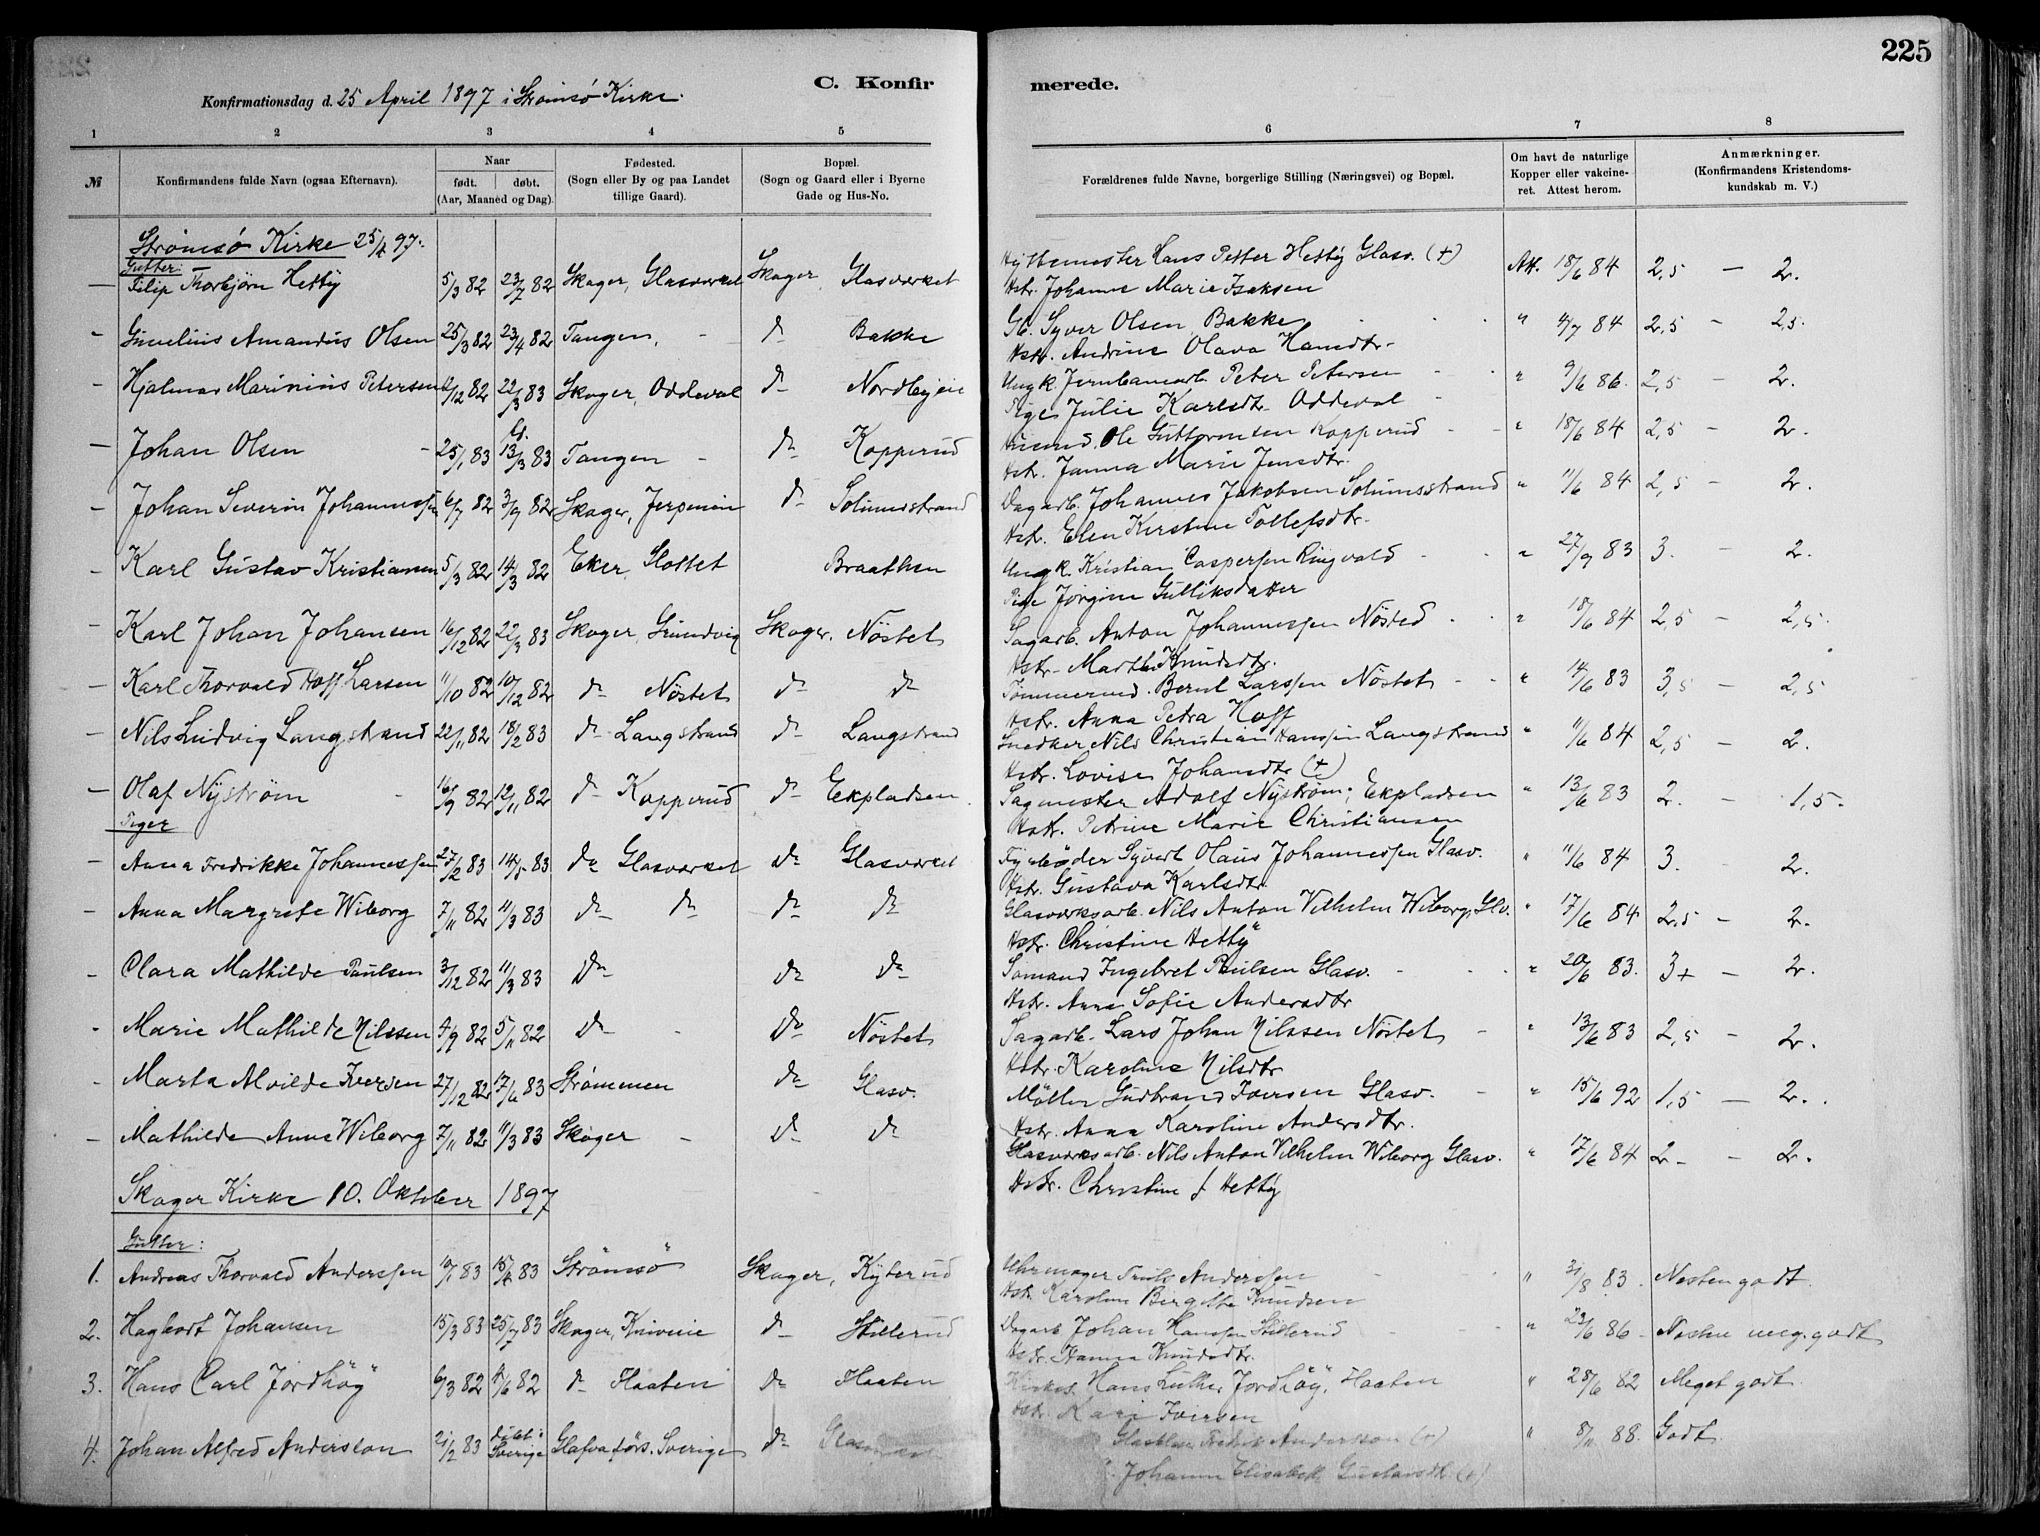 225
C. Konfirmerede.
Konfirmationsdag d. 25 April 1897 i Strømsø Kirke.
1 2 3 4 5 6 7 8
№ Konfirmandens fulde Navn (ogsaa Efternavn). Naar født. døbt. (Aar, Maaned og Dag). Fødested. (Sogn eller By og paa Landet tillige Gaard). Bopæl. (Sogn og Gaard eller i Byerne Gade og Hus-No. Forældrenes fulde Navne, borgerlige Stilling (Næringsvei) og Bopæl. Om havt de naturlige Kopper eller vakcineret. Attest herom. Anmærkninger. (Konfirmandens Kristendomskundskab m. V.)
Strømsø Kirke 25/4 97.
Gutter:
— Filip Thorbjørn Hetty 5/3 82 23/7 82 Skoger, Glasværket Skoger, Glasværket Hyttemester Hans Petter Hetty Glasv. (+) Att. 18/6 84 2,5 — 2.
Hstr. Johanne Marie Isaksen
— Gunelius Amandus Olsen 25/3 82 23/4 82 Tangen, d⁰ Bakke Gb. Syver Olsen Bakke " 4/7 84 2,5 — 2,5.
Hstr. Andrine Olava Hansdtr.
— Hjalmar Marinius Petersen /12 82 22/3 83 Skoger, Oddeval d⁰ Nordbyeie Ungk. Jernbanearb. Peter Petersen " 9/6 86. 2,5 — 2.
Pige Julie Karlsdtr. Oddeval
— Johan Olsen 25/1 83 13/3 83 Tangen d⁰ Kopperud Ole Guttormsen Kopperud " 18/6 84 2,5 — 2.
Hstr. Janna Marie Jensdtr.
— Johan Severin Johannessen 6/7 82 3/9 82 Skoger, d⁰ Solumsstrand Dagarb. Johannes Jakobsen Solumsstrand " 11/6 84 2,5 — 2.
Hstr. Elen Kirstine Tollefsdtr.
— Karl Gustav Kristiansen 5/3 82 14/3 82 Eker, Slottet Braathen Ungk. Kristian Caspersen Ringvold " 27/9 83 3. — 2.
Pige Jørgine Gulliksdatter
— Karl Johan Johansen 16/12 82 22/3 83 Skoger, Grundvig Skoger. Nøstet Sagarb. Anton Johannessen Nøsted " 18/6 84 2,5 — 2,5.
Hstr. Marthe Knudsdtr.
— Karl Thorvald Hoff Larsen 11/10 82 10/12 82 d⁰ Nøstet d⁰ d⁰ Tømmermd. Bernt Larssen Nøstet " 14/6 83 3,5 — 2,5
Hstr. Anna Petra Hoff
— Nils Ludvig Langstrand 22/11 82 18/2 83 d⁰ Langstrand d⁰ Langstrand Snedker Nils Christian Hanssen Langstrand " 11/6 84 2,5 — 2.
Hstr. Lovise Johansdtr (+)
— Olaf Nyström 16/9 82 12/11 82 d⁰ Kopperud d⁰ Ekpladsen Sagmester Adolf Nystrøm, Ekpladsen " 13/6 83 2. — 1,5.
Hstr. Petrine Marie Christiansen
Piger
— Anna Fredrikke Johannessen 27/2 83 14/5 83 d⁰ Glasværket d⁰ Glasværket Fyrbøder Syvert Olaus Johannessen Glasv. " 11/6 84 3. 2.
Hstr. Gustava Karlsdtr.
— Anna Margrete Wiborg 7/11 82 11/3 83 d⁰ d⁰ d⁰ d⁰ Glasværksarb. Nils Anton Vilhelm Wiborg, Glv. " 17/6 84 2,5 — 2.
Hstr. Christine Hetty
— Clara Mathilde Paulsen 3/12 82 11/3 83 d⁰ d⁰ d⁰ Sømand Ingebret Paulsen Glasv. " 20/6 83. 3+ — 2.
Hstr. Anne Sofie Andersdtr
— Marie Mathilde Nilssen 4/9 82 5/11 82 d⁰ d⁰ Nøstet Sagarb. Lars Johan Nilssen Nøstet " 13/6 83 2,5 — 2.
Hstr. Karoline Nilsdtr
— Marta Alvilde Iversen 27/12 82 17/6 83 Strømmen d⁰ Glasv. Møller Gudbrand Iversen Glasv. " 15/6 92 1,5 — 2.
Hstr. Anna Karoline Andersdtr.
— Mathilde Anne Wiborg 7/11 82 11/3 83 Skoger d⁰ d⁰ Glasværksarb. Nils Anton Vilhelm Wiborg Glasv. " 17/6 84 2 — 2.
Hstr. Christine f Hetty
Skoger Kirke 10. Oktober 1897
Gutter:
1. Andreas Thorvald Anderssen 10/1 83 15/4 83 Strømsø Skoger, Kyterud Uhrmager Truls Anderssen " 31/8 83. Nesten godt.
Hstr. Karoline Birgitte Knudsen
2. Hagbart Johansen 15/3 83 25/7 83 Skoger, Kniveie d⁰ Stillerud Dagarb. Johan Hanssen Stillerud " 23/6 86 Nesten meg. godt
Hstr. Hanna Knudsdtr.
3. Hans Carl Jordhøy 6/3 82 4/6 82 d⁰ Haaten d⁰ Haaten Kirkes. Hans Luther Jordhøy, Haaten " 28/6 82 Meget godt
Hstr. Kari Iversen
4. Johan Alfred Andersson 21/2 83 døbt i Sverige Glafva førs. Sverige d⁰ Glasv. Fredrik Andersson (+) " 8/11 88. Godt
Johanna Elisabeth Gustavsdtr. (+)